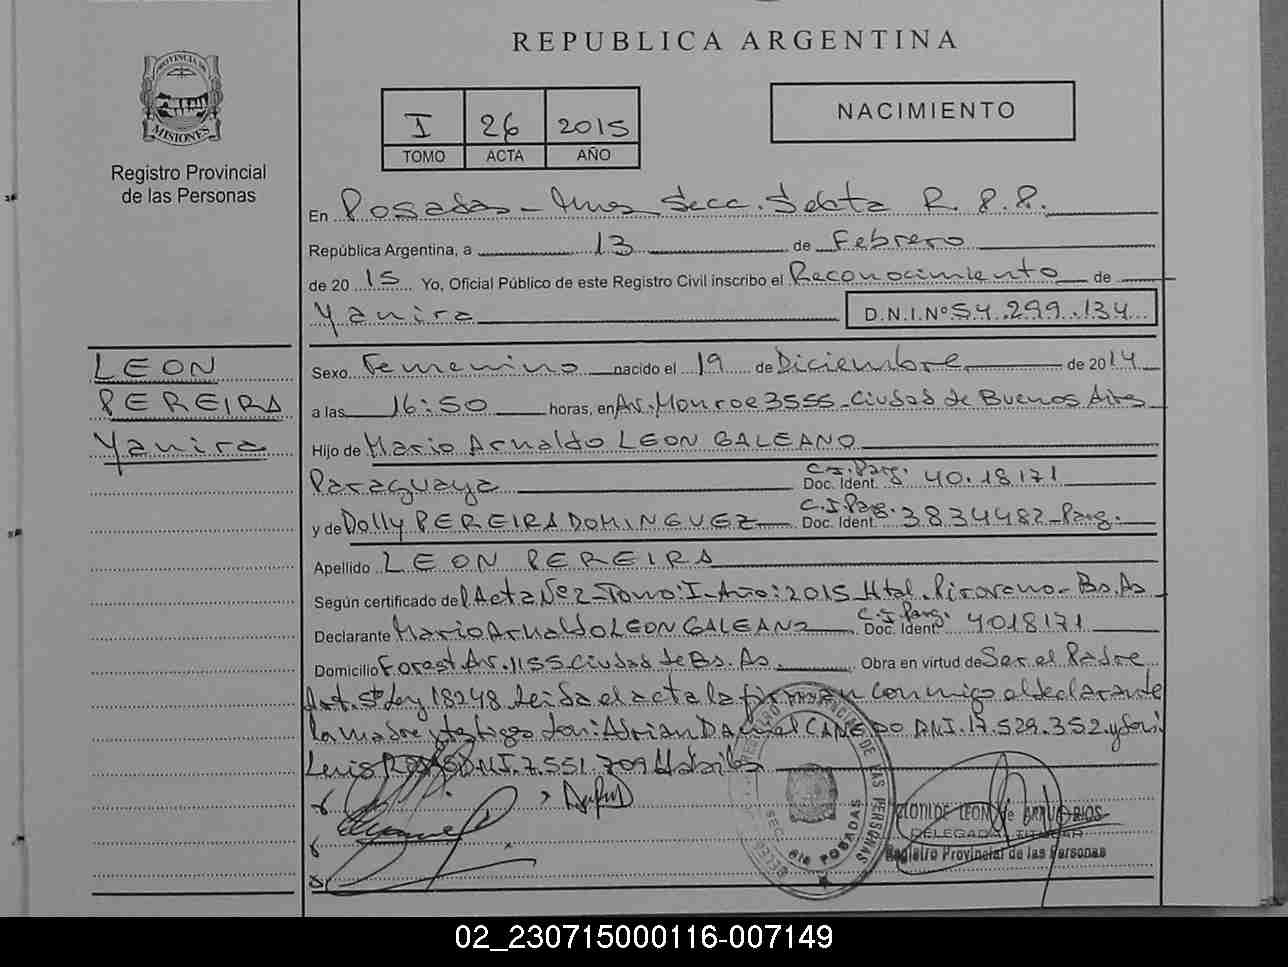 REPUBLICA ARGENTINA
PROVINCIA DE
MISIONES
Registro Provincial
de las Personas
I 26 2015
TOMO ACTA AÑO
NACIMIENTO
En Posadas - Mnes Secc. Sexta R.P.P.
República Argentina, a 13 de Febrero
de 2015 Yo, Oficial Público de este Registro Civil inscribo el Reconocimiento de
Yanira D.N.I.Nº 54.299.134
LEON
PEREIRA
Yanira
Sexo Femenino nacido el 19 de Diciembre de 2014
a las 16:50 horas, en Av. Monroe 3555 - Ciudad de Buenos Aires
Hijo de Mario Arnaldo LEON GALEANO
Paraguaya C.I. Parg. Doc. Ident. 4018171
y de Dolly PEREIRA DOMINGUEZ C.I. Parg. Doc. Ident. 3834482 - Parg.
Apellido LEON PEREIRA
Según certificado del Acta Nº 2 - Tomo: I - Año: 2015 Htal. Pirovano - Bs. As
Declarante Mario Arnaldo LEON GALEANO C.I. Parg. Doc. Ident. 4018171
Domicilio Forest Av. 1155 Ciudad de Bs. As. Obra en virtud de Ser el Padre
Art. 5º Ley 18248 Leida el acta la firman conmigo el declarante
la madre y testigos don: Adrian Daniel DNI. 17.529.352 y don:
Luis DNI. 7.551.709 Habiles
REGISTRO PROVINCIAL DE LAS PERSONAS
SECC. 6ta POSADAS
CLOTILDE LEON de
DELEGADA TITULAR
Registro Provincial de las Personas
02_230715000116-007149